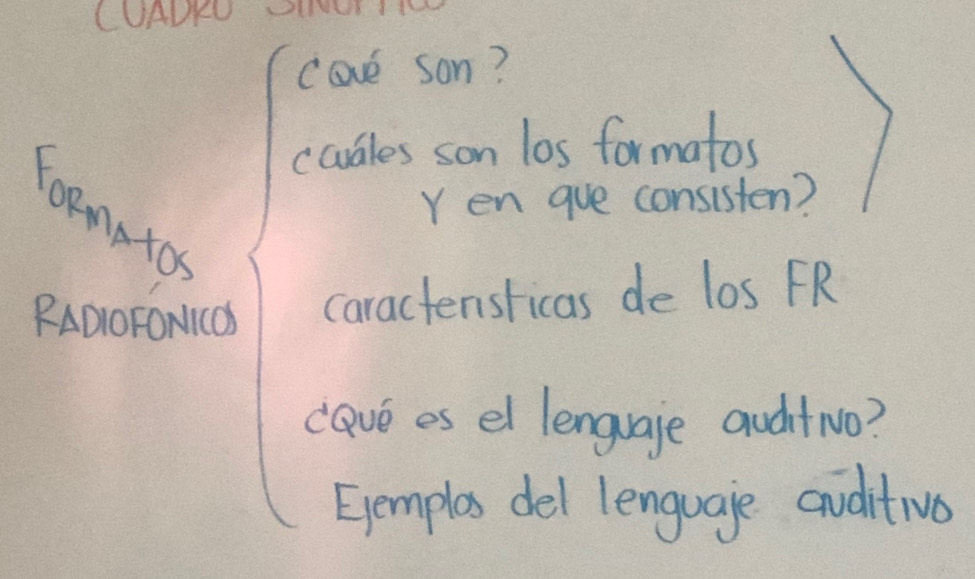 CUADRO SINÓPTICO
¿Qué son?
¿cuáles son los formatos
Y en que consisten?
FORMATOS
RADIOFÓNICOS
caracteristicas de los FR
¿Qué es el lenguaje auditivo?
Ejemplos del lenguaje auditivo